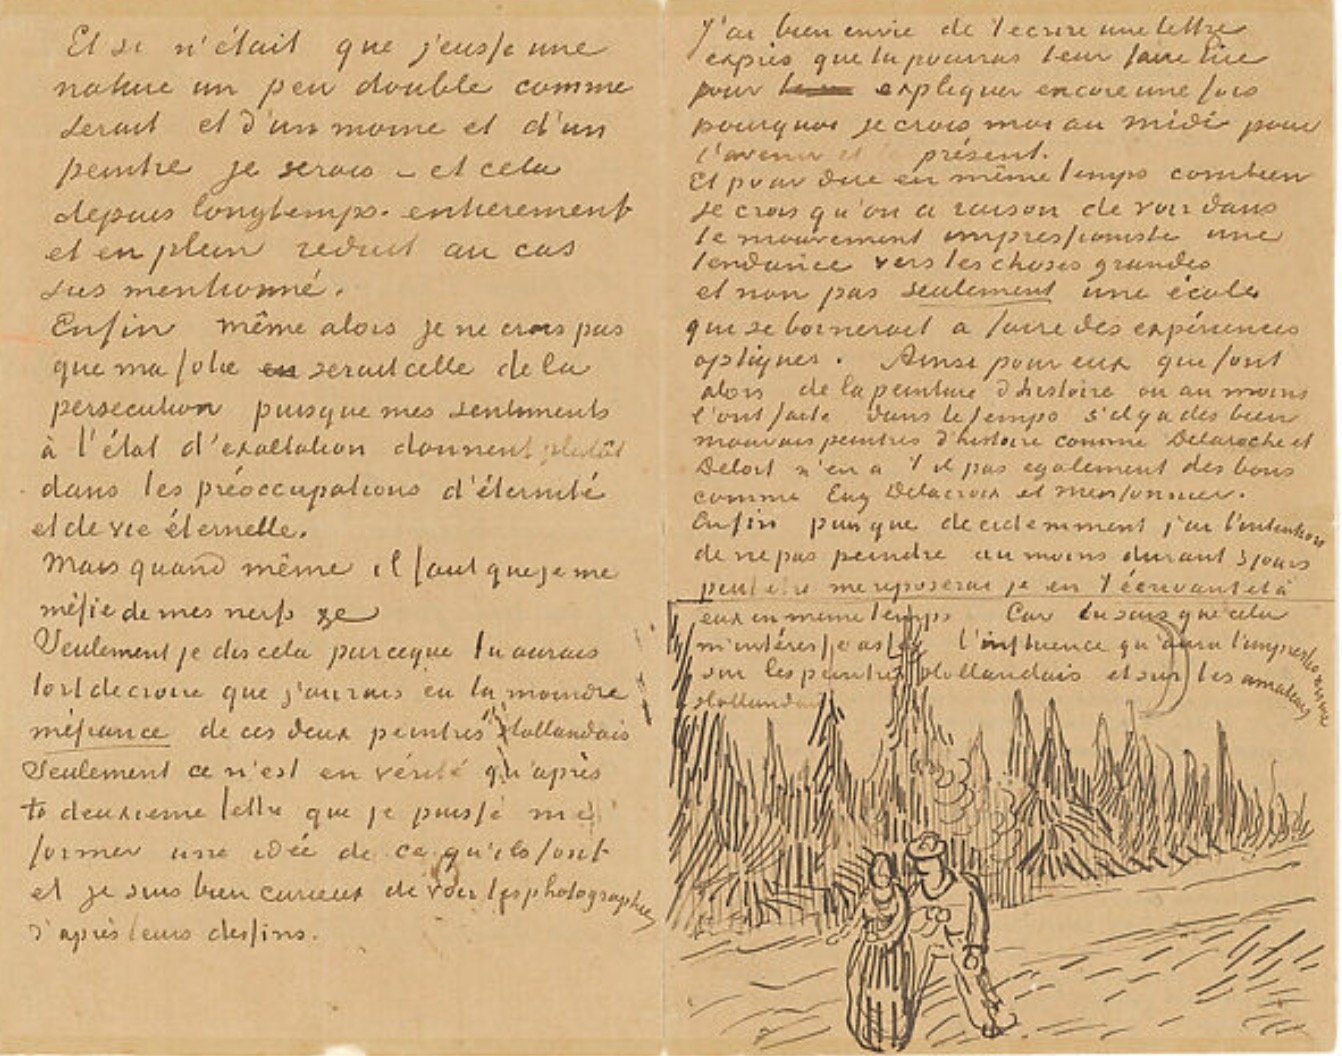 Et si n'était que j'eusse une
nature un peu double comme
serait et d'un moine et d'un
peintre je serais – et cela
depuis longtemps. entierement
et en plein reduit au cas
sus mentionné.
Enfin même alors je ne crois pas
que ma folie serait celle de la
persecution puisque mes sentiments
à l'état d'exaltation donnent plutôt
dans les préoccupations d'éternité
et de vie éternelle.
Mais quand même il faut que je me
méfie de mes nerfs
Seulement je dis cela parceque tu aurais
tort de croire que j'aurais eu la moindre
méfiance de ces deux peintres Hollandais
Seulement ce n'est en vérité qu'après
ta deuxieme lettre que je puisse me
former une idée de ce qu'ils font
et je suis bien curieux de voir les photographies
d'après leurs dessins.
J'ai bien envie de t'ecrire une lettre
exprès que tu pourras leur faire lire
pour expliquer encore une fois
pourquoi je crois moi au midi pour
l'avenir et présent.
Et pour dire en même temps combien
je crois qu'on a raison de voir dans
le mouvement impressioniste une
tendance vers les choses grandes
et non pas seulement une école
que se bornerait a faire des expériences
optiques. Ainsi pour eux que font
alors de la peinture d'histoire ou au moins
l'ont faite dans le temps s'il y a des bien
mauvais peintres d'histoire comme Delaroche et
Delort n'en a t il pas egalement des bons
comme Eug Delacroix et Meissonnier.
Enfin puisque decidemment j'ai l'intention
de ne pas peindre au moins durant 3 jours
peut etre me reposerai je en t'écrivant et à
eux en meme temps Car tu sais que cela
m'intéresse assez l'influence qu'aura l'impressionisme
sur les peintres Hollandais et sur les amateurs
Hollandais